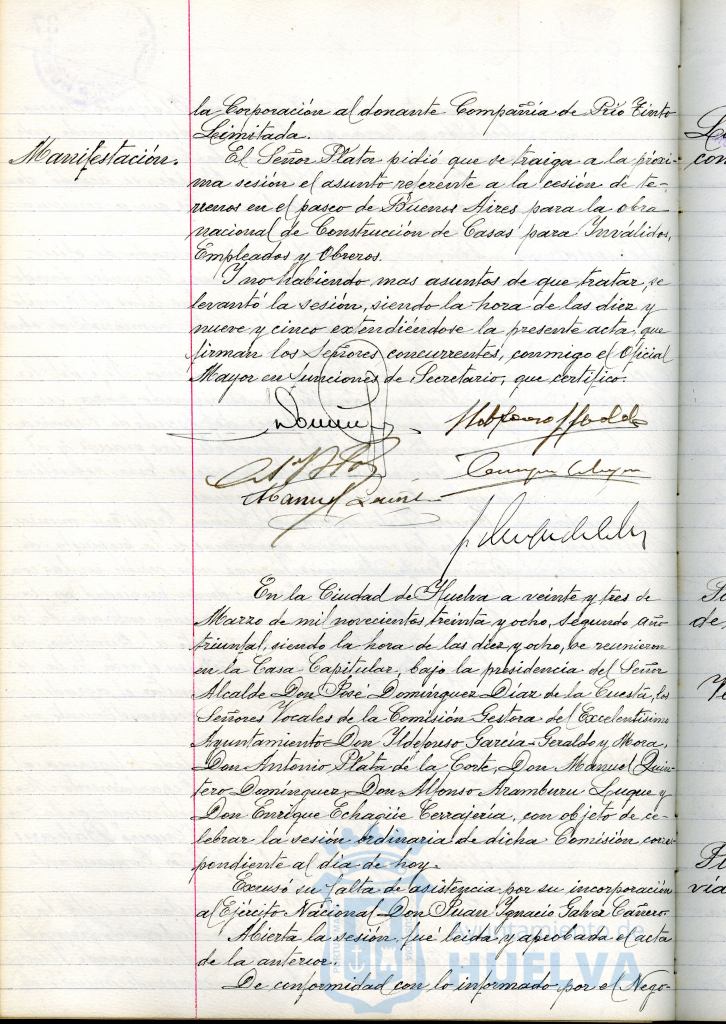 la Corporación al donante Compañia de Rio Tinto
Limitada.
Manifestación.
El Señor Plata pidió que se traiga a la próxi-
ma sesión el asunto referente a la cesión de te-
rrenos en el paseo de Buenos Aires para la obra
nacional de Construcción de Casas para Inválidos,
Empleados y Obreros.
Y no habiendo mas asuntos de que tratar, se
levantó la sesión, siendo la hora de las diez y
nueve y cinco extendiéndose la presente acta, que
firman los Señores concurrentes, conmigo el Oficial
Mayor en funciones de Secretario, que certifico.
Manuel
En la Ciudad de Huelva a veinte y tres de
Marzo de mil novecientos treinta y ocho, segundo año
triunfal, siendo la hora de las diez y ocho, se reunieron
en la Casa Capitular, bajo la presidencia del Señor
Alcalde Don José Domínguez Diaz de la Cuesta, los
Señores Vocales de la Comisión Gestora del Excelentísimo
Ayuntamiento Don Ildefonso García-Geraldo y Mora,
Don Antonio Plata de la Corte, Don Manuel Quin-
tero Domínguez, Don Alfonso Aramburu Luque y
Don Enrique Echagüe Cerrajería, con objeto de ce-
lebrar la sesión ordinaria de dicha Comisión, corres-
pondiente al día de hoy.
Excusó su falta de asistencia por su incorporación
al Ejército Nacional Don Juan Ignacio Galvez Cañero.
Abierta la sesión, fué leída y aprobada el acta
de la anterior.
De conformidad con lo informado por el Nego-
Ayuntamiento de
HUELVA